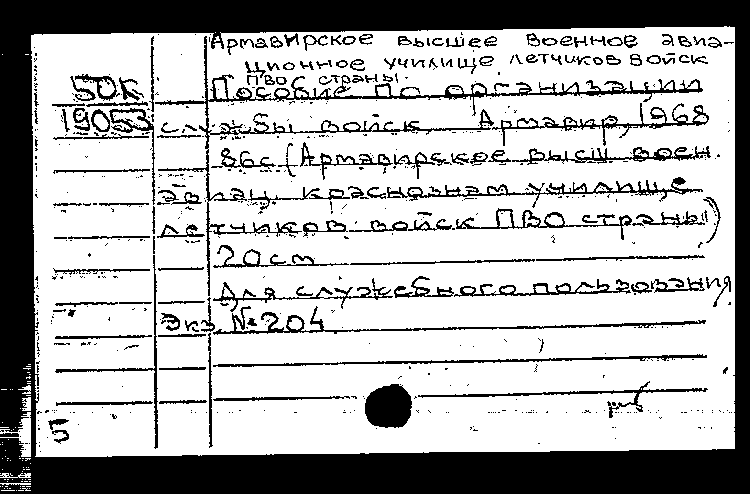 Армавирское высшее военное авиа-
ционное училище летчиков войск
ПВО страны.
50к Пособие по организации
19053 службы войск. Армавир, 1968
86с (Армавирское высш воен.
авиац. краснознам училище
летчиков войск ПВО страны)
20см
Для служебного пользования
Экз. № 204
5